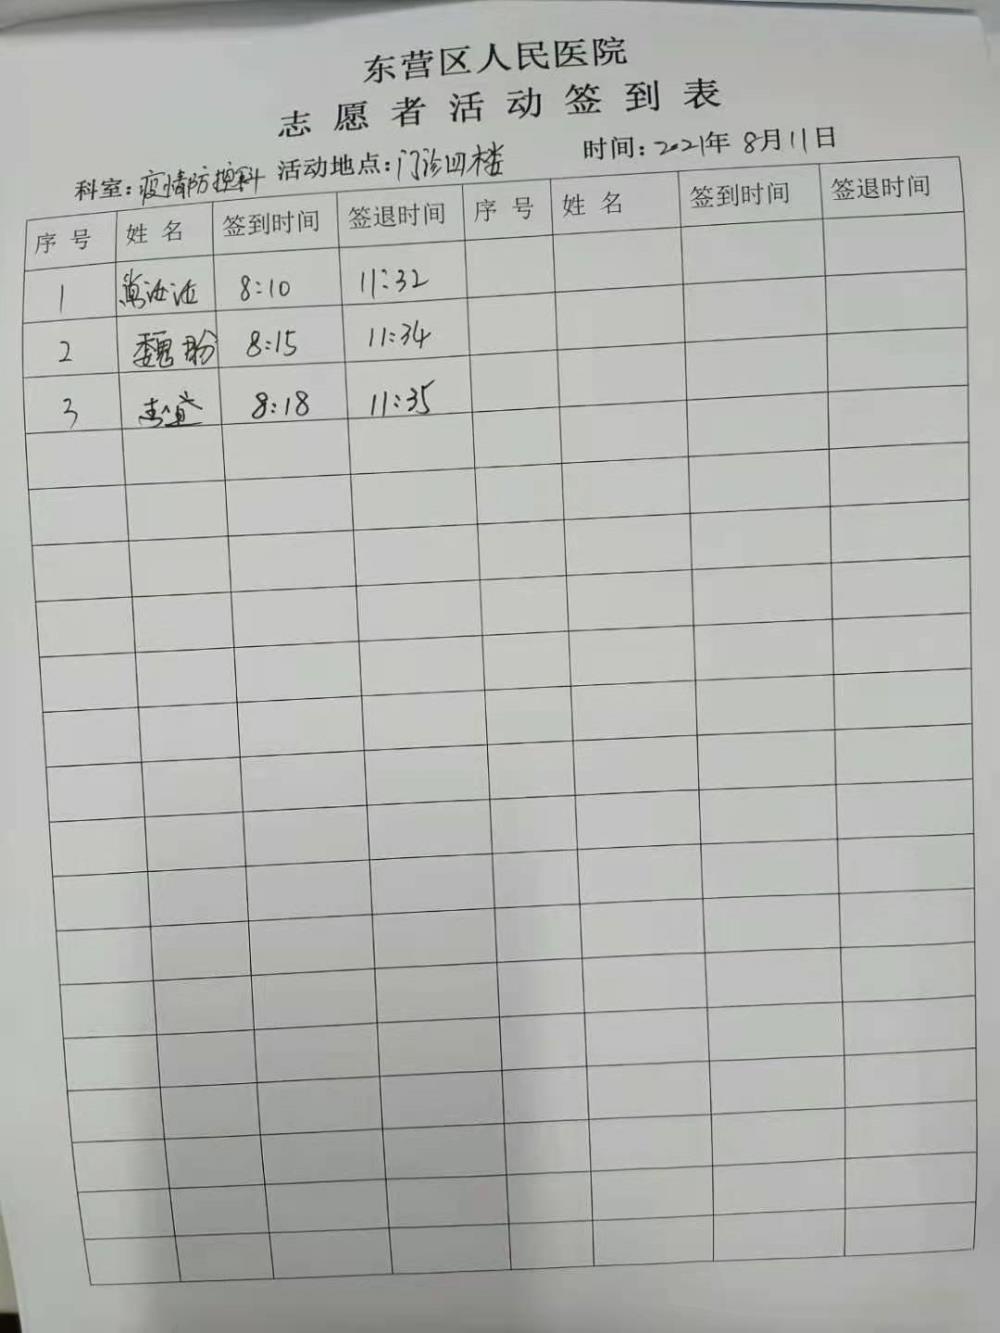 东营区人民医院
志愿者活动签到表
科室：疫情防控科 活动地点：门诊四楼 时间：2021年8月11日
序号 姓名 签到时间 签退时间 序号 姓名 签到时间 签退时间
1 8:10 11:32
2 魏盼 8:15 11:34
3 8:18 11:35